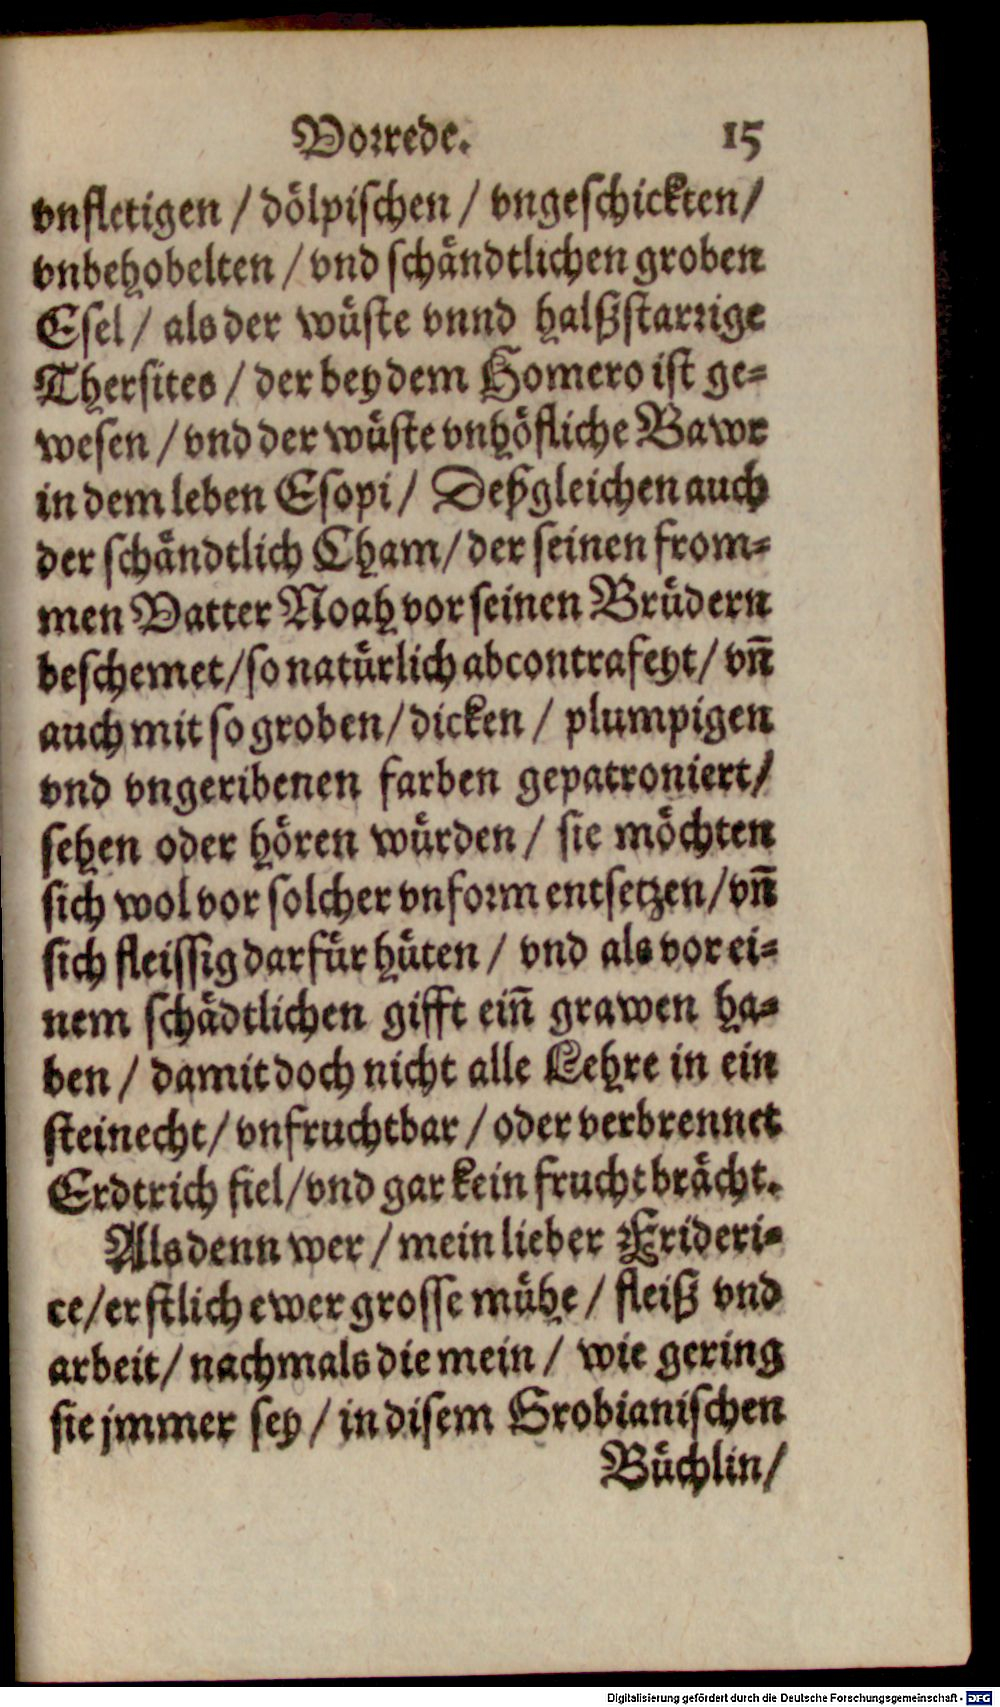 Vorrede. 15
vnfletigen / dölpischen / vngeschickten /
vnbehobelten / vnd schändtlichen groben
Esel / als der wüste vnnd halßstarrige
Thersites / der bey dem Homero ist ge-
wesen / vnd der wüste vnhöfliche Bawr
in dem leben Esopi / Deßgleichen auch
der schändtlich Cham / der seinen from-
men Vatter Noah vor seinen Brüdern
beschemet / so natürlich abcontrafeyt / vn̄
auch mit so groben / dicken / plumpigen
vnd vngeribenen farben gepatroniert /
sehen oder hören würden / sie möchten
sich wol vor solcher vnform entsetzen / vn̄
sich fleissig darfür hüten / vnd als vor ei-
nem schädtlichen gifft ein̄ grawen ha-
ben / damit doch nicht alle Lehre in ein
steinecht / vnfruchtbar / oder verbrennet
Erdtrich fiel / vnd gar kein frucht brächt.
Als denn wer / mein lieber Frideri-
ce / erstlich ewer grosse mühe / fleiß vnd
arbeit / nachmals die mein / wie gering
sie jmmer sey / in disem Grobianischen
Büchlin /
Digitalisierung gefördert durch die Deutsche Forschungsgemeinschaft - DFG